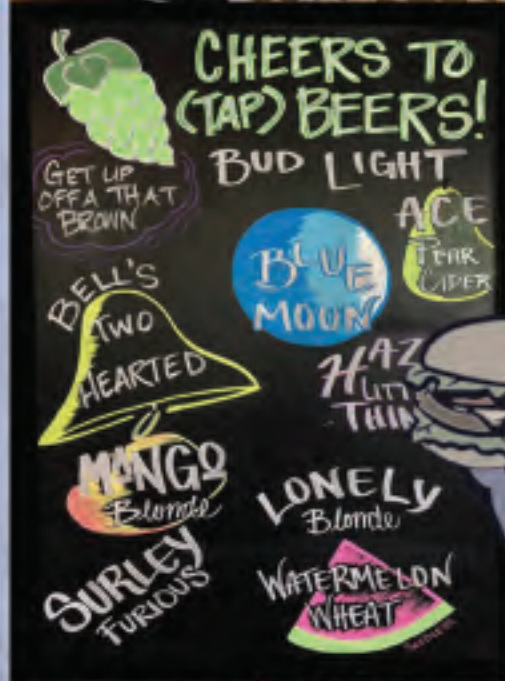 CHEERS TO
(TAP) BEERS!
BUD LIGHT
GET UP
OFFA THAT
BROWN
ACE
PEAR
CIDER
BLUE
MOON
BELL'S
TWO
HEARTED
MANGO
Blonde
LONELY
Blonde
SURLEY
FURIOUS
WATERMELON
WHEAT